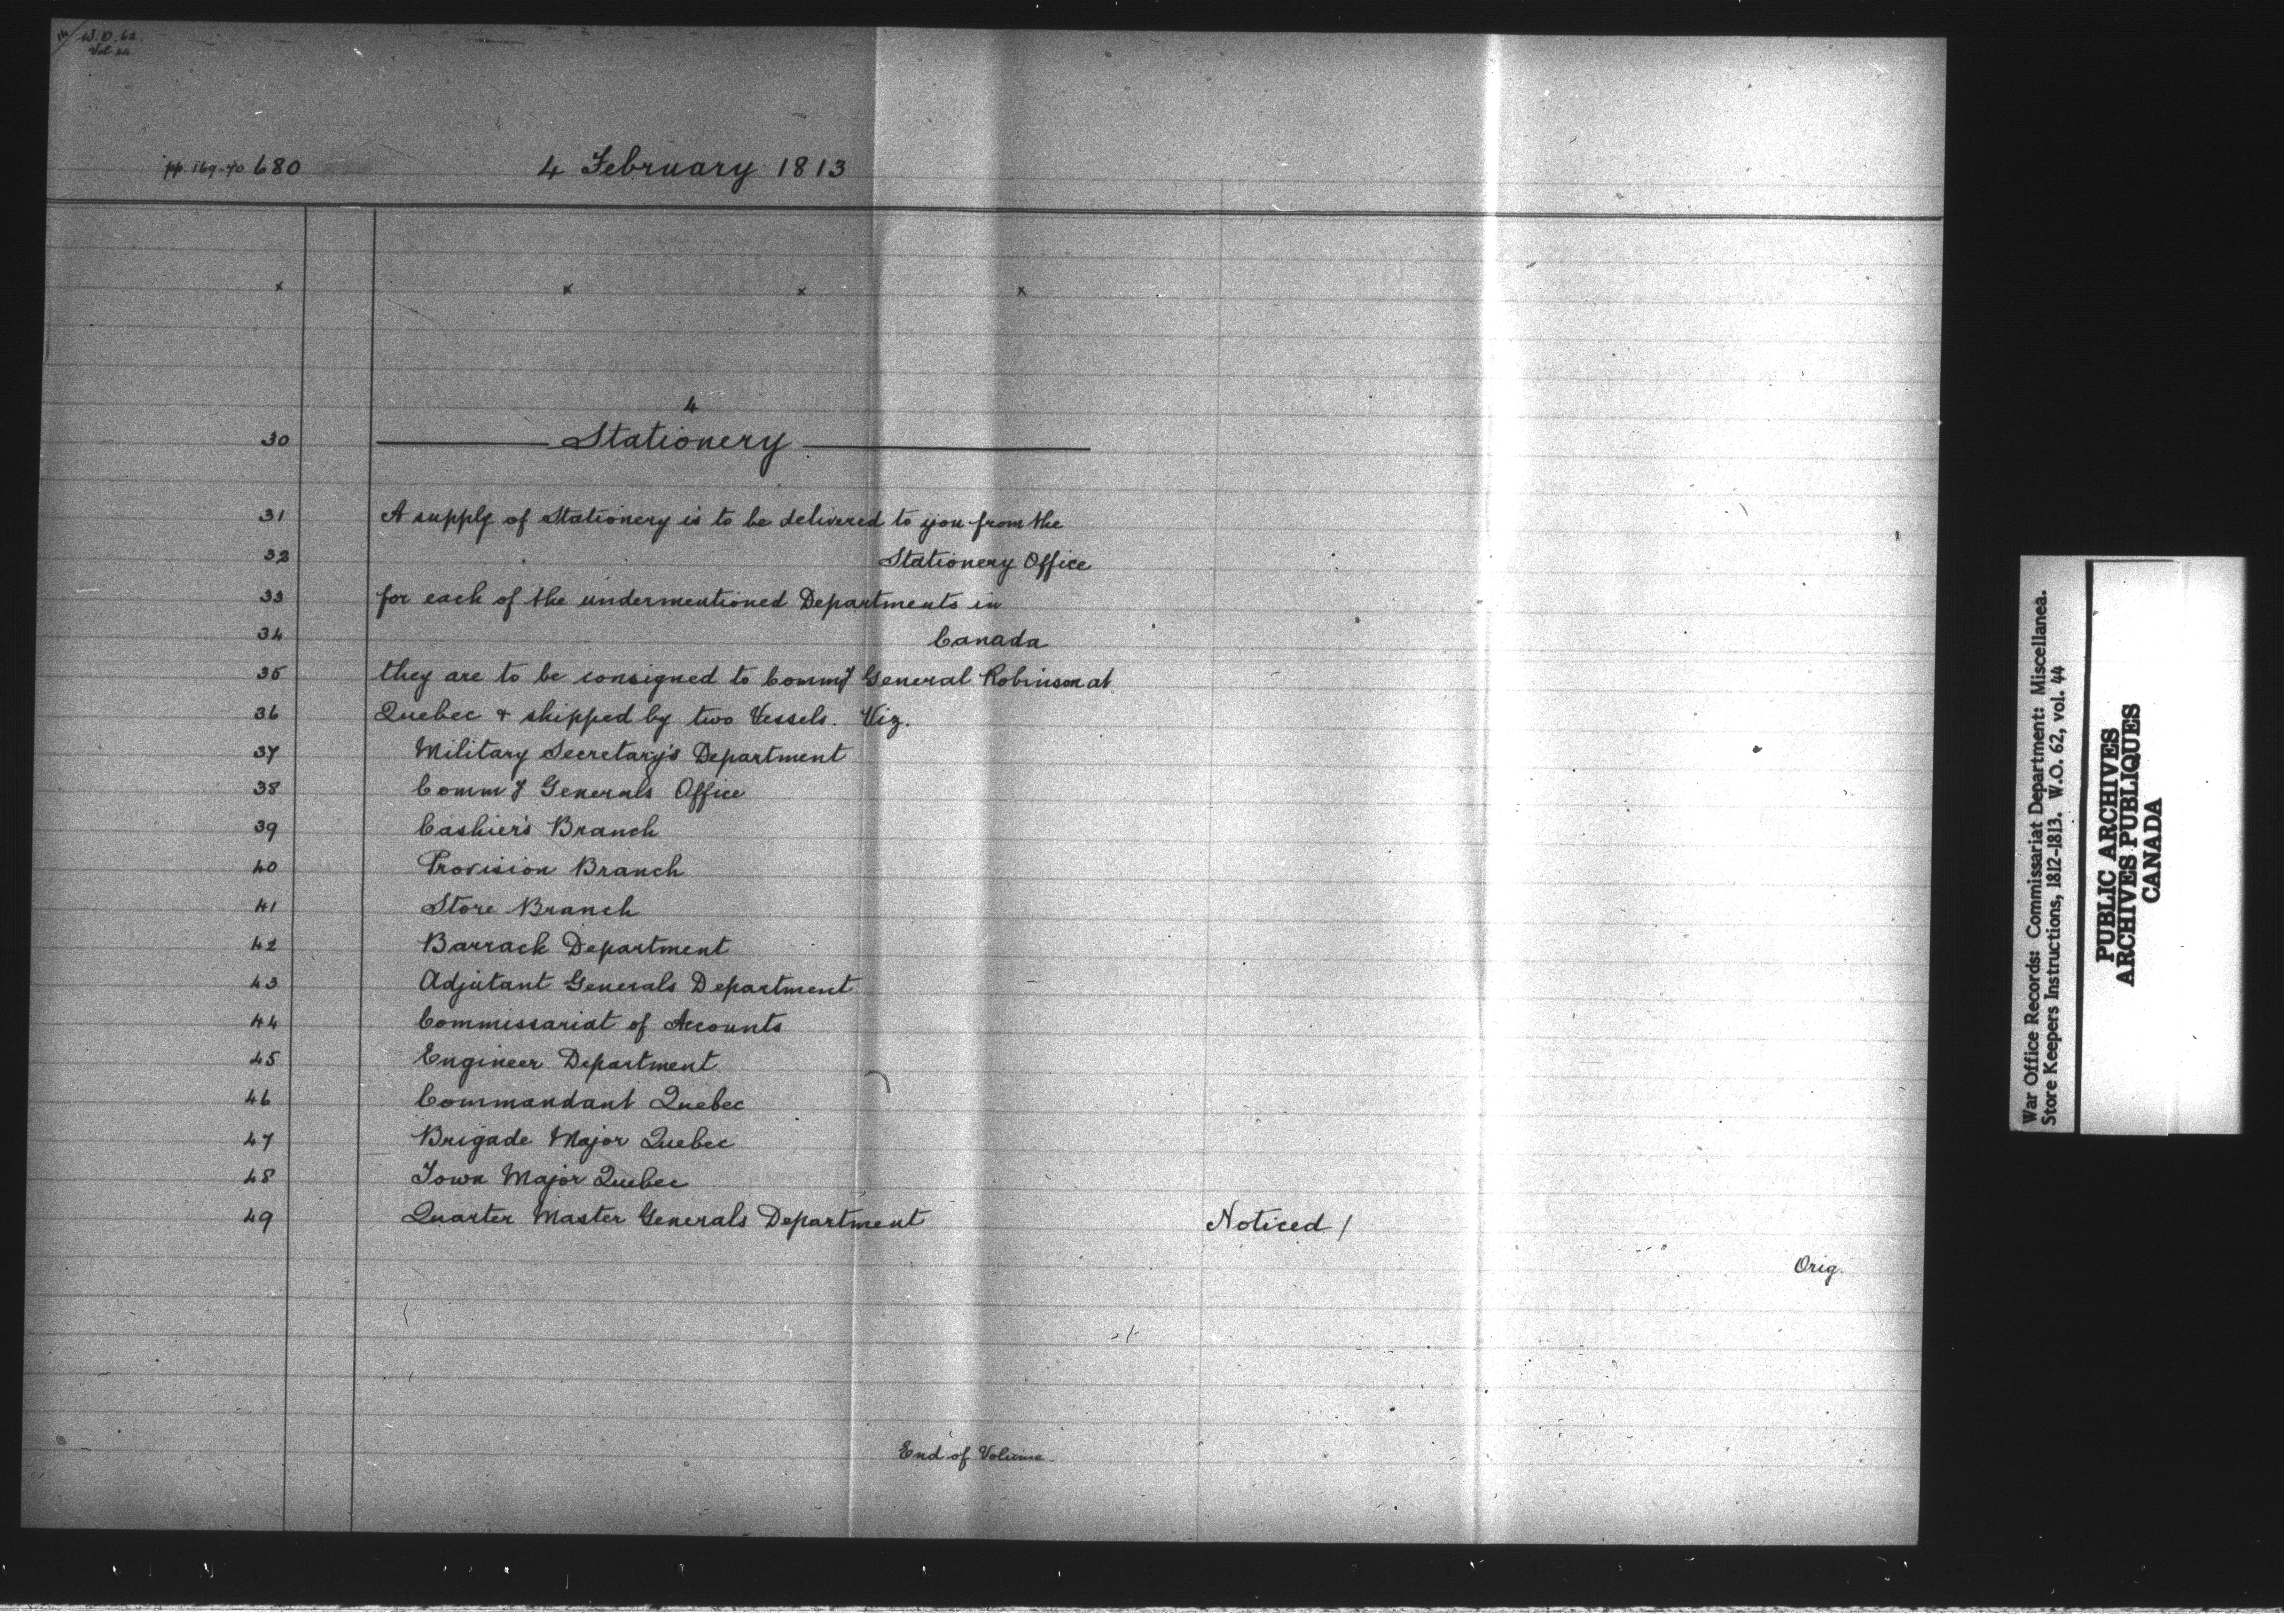 W.O. 62.
Vol 44
pp. 169-70 680 4 February 1813
x x x x
4
30 Stationery
31 A supply of Stationery is to be delivered to you from the
32 Stationery Office
33 for each of the undermentioned Departments in
34 Canada
35 they are to be consigned to Commy General Robinson at
36 Quebec + shipped by two Vessels. Viz.
37 Military Secretary's Department
38 Commy Generals Office
39 Cashier's Branch
40 Provision Branch
41 Store Branch
42 Barrack Department
43 Adjutant Generals Department
44 Commissariat of Accounts
45 Engineer Department
46 Commandant Quebec
47 Brigade Major Quebec
48 Town Major Quebec
49 Quarter Master Generals Department Noticed /
Orig.
End of Volume
War Office Records: Commissariat Department: Miscellanea.
Store Keepers Instructions, 1812-1813. W.O. 62, vol. 44
PUBLIC ARCHIVES
ARCHIVES PUBLIQUES
CANADA